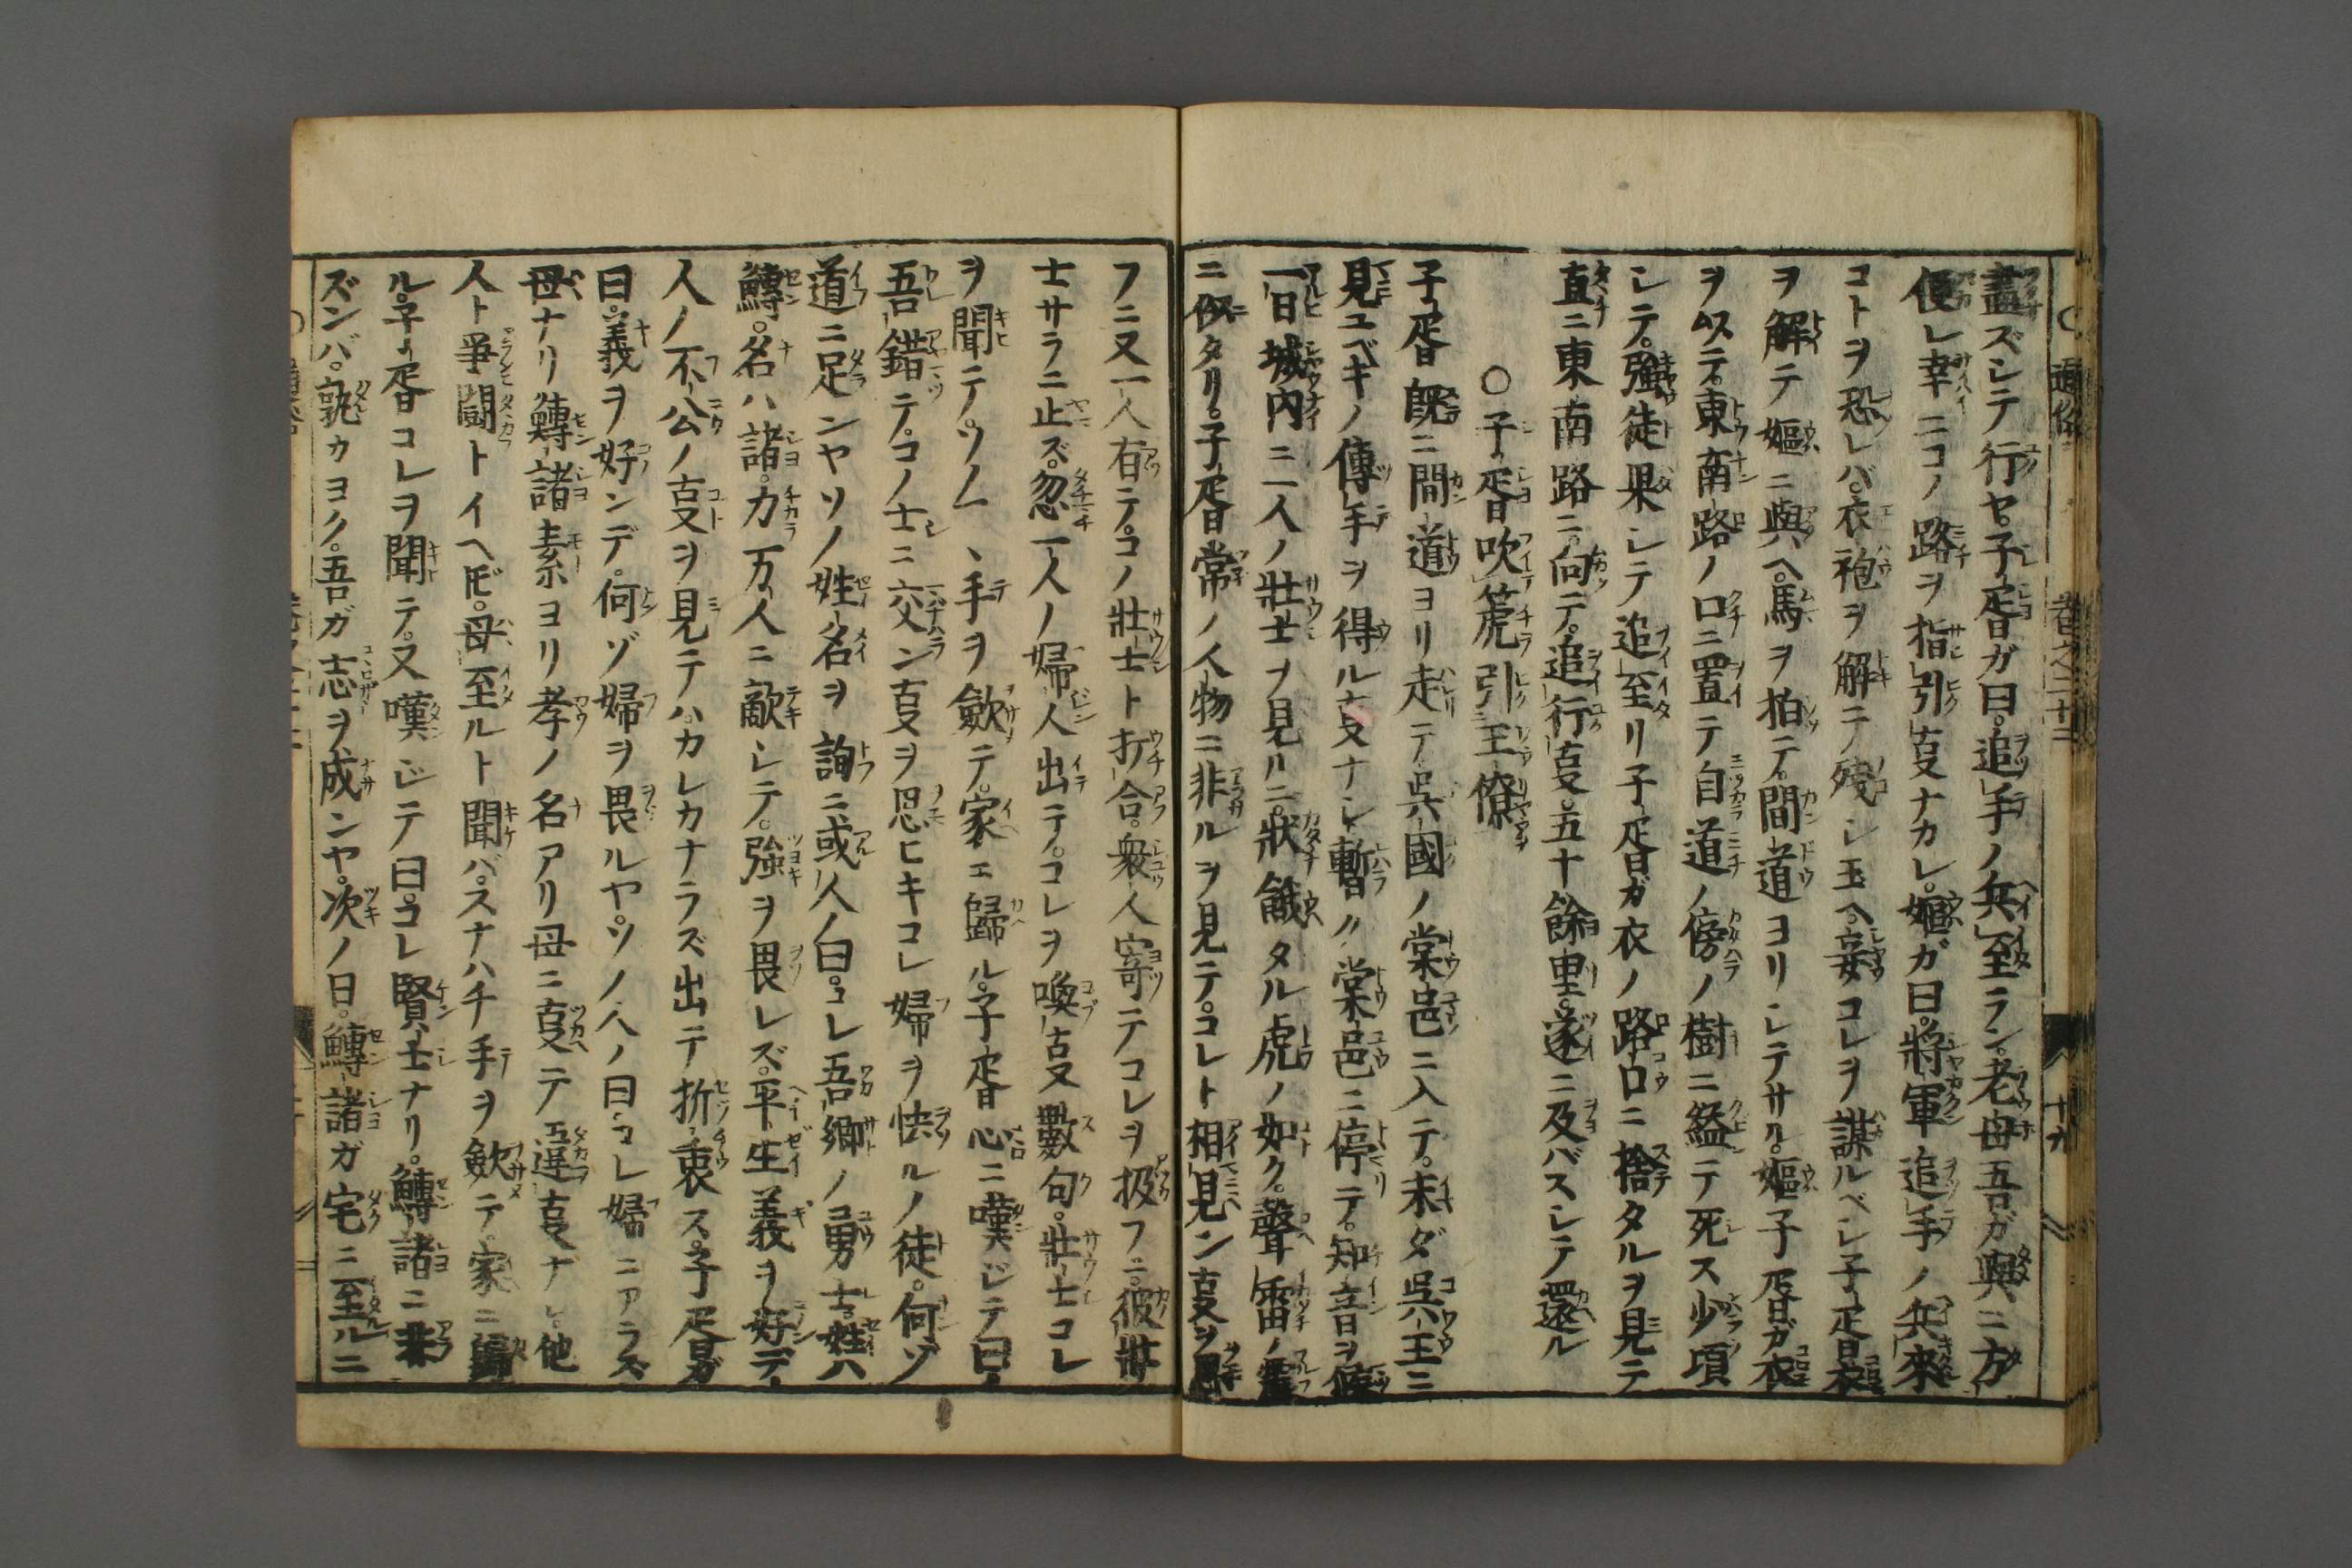 盡ズシテ行ヤ。子胥ガ曰。追手ノ兵至ラン。老母吾ガ與ニ方
便シ幸ニコノ路ヲ指引亊ナカレ。嫗ガ曰。將軍追手ノ兵來
コトヲ恐レバ。衣袍ヲ解テ殘シ玉ヘ。妾コレヲ謀ルベシ子胥衣
ヲ解テ嫗ニ與ヘ。馬ヲ拍テ。間道ヨリシテサル。嫗子胥ガ衣
ヲ以テ。東南路ノ口ニ置テ自道ノ傍ノ樹ニ縊テ死ス少頃
シテ。強徒果シテ追至リ子胥ガ衣ノ路口ニ捨タルヲ見テ
直ニ東南路ニ。向テ。追行亊。五十餘里。遂ニ及バスシテ還ル
○子胥吹篪引王僚
子胥既ニ間道ヨリ走テ呉國ノ棠邑ニ入テ。未ダ呉王ニ
見ユベキノ傳手ヲ得ル亊ナシ暫ク棠邑ニ停テ。知音ヲ
一日城内ニ二人ノ壯士ヲ見ルニ。狀餓タル虎ノ如ク。聲雷ノ震
ニ似タリ。子胥常ノ人物ニ非ルヲ見テ。コレト相見ン亊ヲ
フニ又一人有テ。コノ壯士ト打合。衆人寄テコレヲ扱フニ。彼壯
士サラニ止ズ。忽一人ノ婦人出テ。コレヲ喚亊數句。壯士コレ
ヲ聞テ。ソノ丶手ヲ歛テ。家エ歸ル。子胥心ニ嘆ジテ曰。
吾錯テ。コノ士ニ交ン亊ヲ思ヒキコレ婦ヲ怯ルノ徒。何ゾ
道ニ足ンヤソノ姓名ヲ詢ニ或人ノ曰。コレ吾郷ノ勇士。姓ハ
鱄。名ハ諸。力万人ニ敵シテ。強ヲ畏レズ。平生義ヲ好デ。
人ノ不公ノ亊ヲ見テハ。カレカナラズ出テ折衷ス。子胥ガ
曰。義ヲ好ンデ。何ゾ婦ヲ畏ルヤ。ソノ人ノ曰。コレ婦ニアラズ
母ナリ鱄諸素ヨリ孝ノ名アリ母ニ亊テ違亊ナシ。他
人ト爭鬪トイヘ𪜈。母至ルト聞バ。スナハチ手ヲ歛テ。家ニ歸
ル。子胥コレヲ聞テ。又嘆ジテ曰。コレ賢士ナリ。鱄諸ニ
ズンバ。孰カヨク。吾ガ志ヲ成ンヤ。次ノ日。鱄諸ガ宅ニ至ルニ